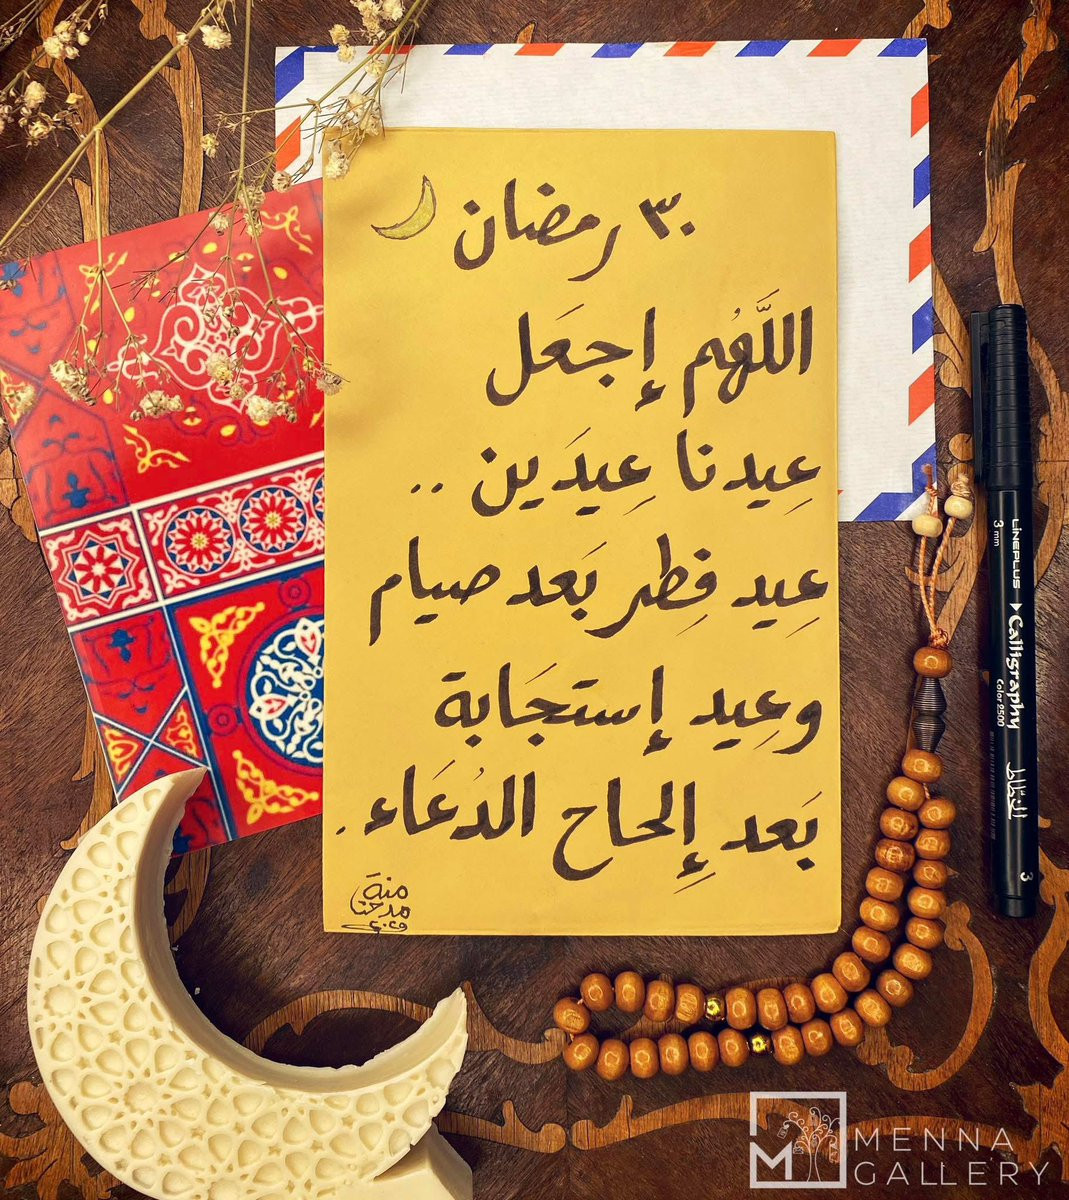 ٣٠ رمضان
اللَّهُم إجعَل
عِيدنا عِيدَين ..
عِيد فِطر بَعد صيام
وعِيد إستجَابة
بَعد إِلحاح الدُعَاء.
منة
مدحت
LiNEPLUS
3 mm
Calligraphy
Color 2500
الخطّاط
3
MENNA
GALLERY